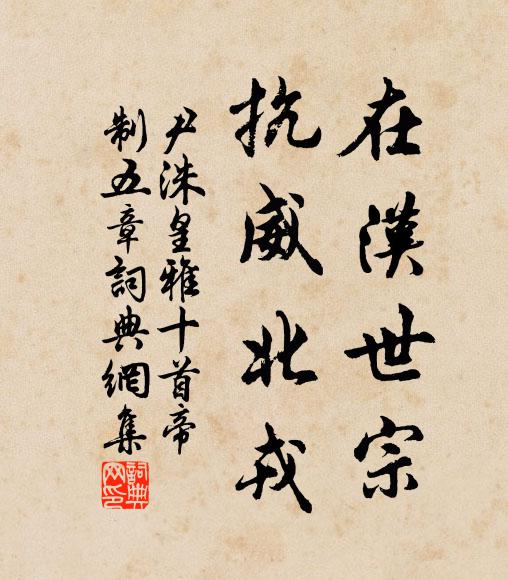 在漢世宗
抗威北戎
尹洙皇雅十首帝
制五章詞典網集
詞典網印